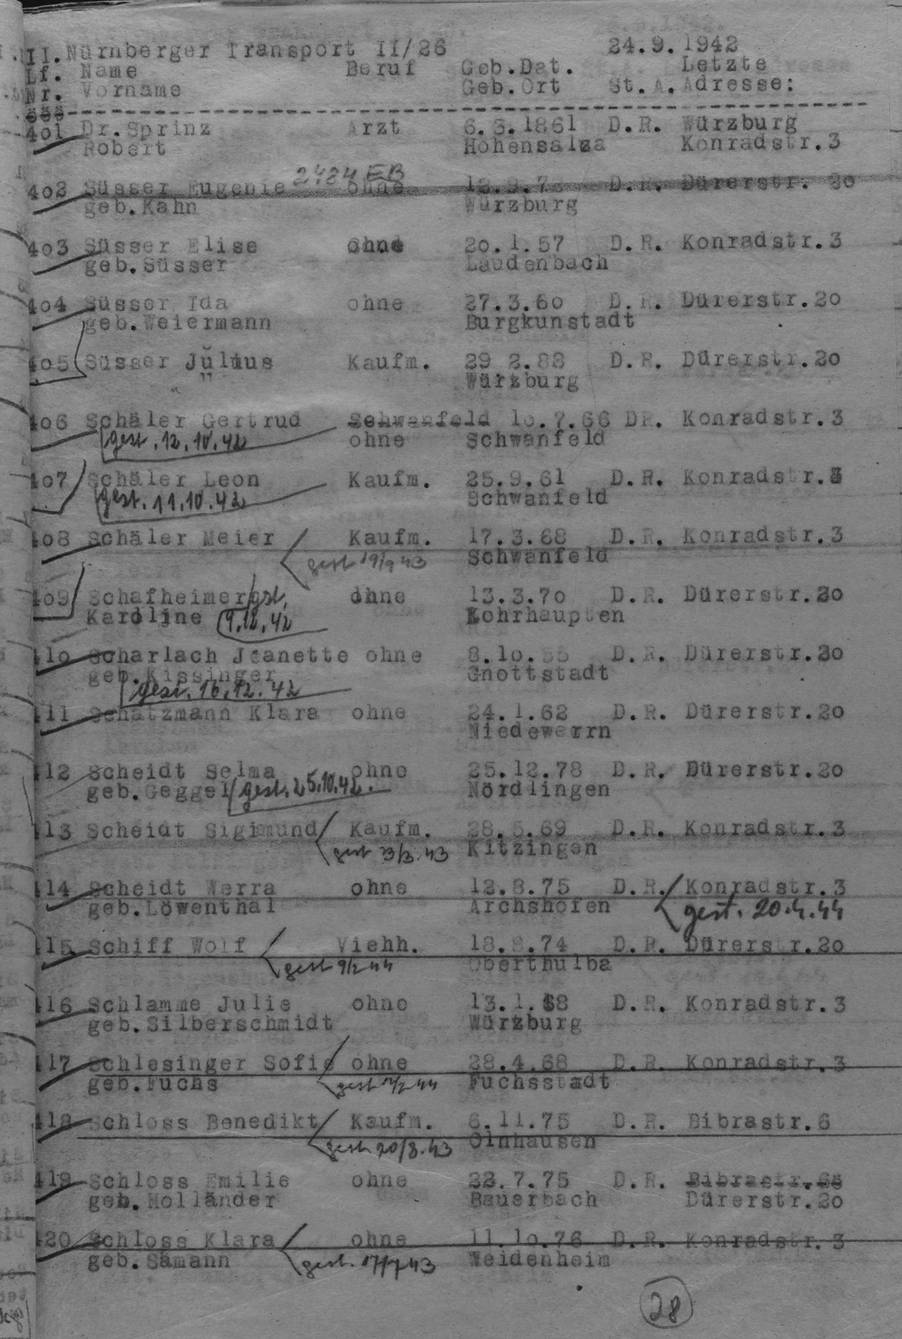 II. Nürnberger Transport II/26 24.9.1942
Lf. Name Beruf Geb.Dat. Letzte
Nr. Vorname Geb.Ort St.A. Adresse:
401 Dr.Sprinz Arzt 6.3.1861 D.R. Würzburg
Robert Hohensalza Konradstr.3
2484 EB
402 Süsser Eugenie ohne D.R. Dürerstr. 20
geb.Kahn Würzburg
403 Süsser Elise ohne 20.1.57 D.R. Konradstr.3
geb.Süsser Laudenbach
404 Süsser Ida ohne 27.3.60 D.R. Dürerstr.20
geb.Weiermann Burgkunstadt
405 Süsser Julius Kaufm. 29 2.88 D.R. Dürerstr.20
" Würzburg
406 Schäler Gertrud Schwanfeld 10.7.66 DR. Konradstr.3
gest. 12.10.42 ohne Schwanfeld
407 Schäler Leon Kaufm. 25.9.61 D.R. Konradstr.3
gest. 11.10.42 Schwanfeld
408 Schäler Meier Kaufm. 17.3.68 D.R. Konradstr.3
gest 19/9 43 Schwanfeld
409 Schafheimer gst. ohne 13.3.70 D.R. Dürerstr.20
Karoline 9.12.42 Lohrhaupten
410 Scharlach Jeanette ohne 8.10. D.R. Dürerstr.20
geb.Kissinger Gnottstadt
gest. 16.12.42
411 Schatzmann Klara ohne 24.1.62 D.R. Dürerstr.20
Niedewerrn
412 Scheidt Selma ohne 25.12.78 D.R. Dürerstr.20
geb.Geggel gest. 25.10.42. Nördlingen
413 Scheidt Sigimund Kaufm. 28.5.69 D.R. Konradstr.3
gest 43 Kitzingen
414 Scheidt Werra ohne 12.8.75 D.R. Konradstr.3
geb.Löwenthal Archshofen gest. 20.4.44
415 Schiff Wolf Viehh. 18.8.74 D.R. Dürerstr.20
gest 44 Oberthulba
416 Schlamme Julie ohne 13.1.58 D.R. Konradstr.3
geb.Silberschmidt Würzburg
417 Schlesinger Sofie ohne 28.4.68 D.R. Konradstr.3
geb.Fuchs gest 44 Fuchsstadt
418 Schloss Benedikt Kaufm. 6.11.75 D.R. Bibrastr.6
gest 20/8.43 Olnhausen
419 Schloss Emilie ohne 22.7.75 D.R. Bibrastr.
geb.Holländer Bauerbach Dürerstr.20
420 Schloss Klara ohne 11.10.76 D.R. Konradstr.3
geb.Sämann gest. 43 Weidenheim
28